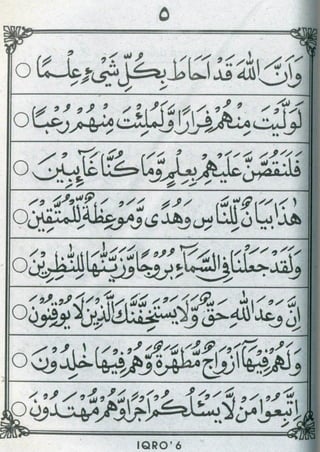 ٥
وَاَنَّ اللّٰهَ قَدْ اَحَاطَ بِكُلِّ شَيْءٍ عِلْمًا
لَوَلَّيْتَ مِنْهُمْ فِرَارًا وَّلَمُلِئْتَ مِنْهُمْ رُعْبًا
فَلَنَقُصَّنَّ عَلَيْهِمْ بِعِلْمٍ وَّمَا كُنَّا غَآئِبِيْنَ
هٰذَا بَيَانٌ لِّلنَّاسِ وَهُدًى وَّمَوْعِظَةٌ لِّلْمُتَّقِيْنَ
وَلَقَدْ جَعَلْنَا فِى السَّمَآءِ بُرُوْجًا وَّزَيَّنّٰهَا لِلنّٰظِرِيْنَ
اِنَّ وَعْدَ اللّٰهِ حَقٌّ وَّلَا يَسْتَخِفَّنَّكَ الَّذِيْنَ لَا يُوْقِنُوْنَ
وَلَهُمْ فِيْهَآ اَزْوَاجٌ مُّطَهَّرَةٌ وَّهُمْ فِيْهَا خٰلِدُوْنَ
اِتَّبِعُوْا مَنْ لَّا يَسْـَٔلُكُمْ اَجْرًا وَّهُمْ مُّهْتَدُوْنَ
IQRO'6